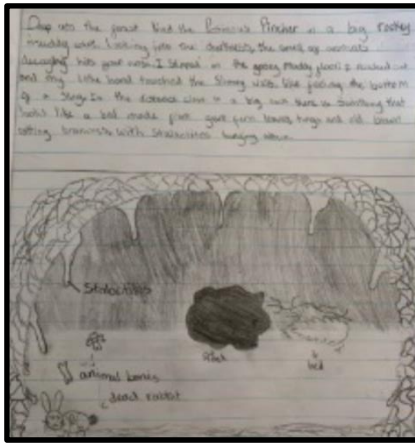 Deep into the forest lived the Poisonous Pincher in a big rockey
muddy cave. Looking into the darkness, the smell of animals
decaying hits your nose. I stepped in the gooey muddy floor I reached out
and my little hand touched the slimey walls like feeling the bottom
of a slug. In the distance down in a big there is something that
looks like a bed made from giant fern leaves twigs and old brown
rotting branches with Stalactites hanging above.
Stalactites
Rock
bed
animal bones
dead rabbit